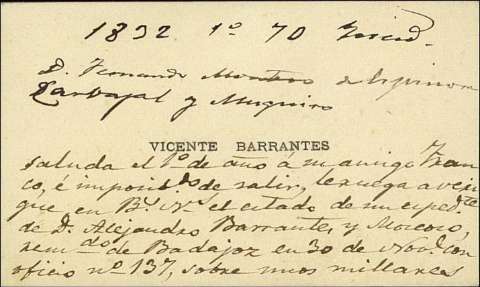 1832 1º 70
D. Fernando Montero de Espinosa
Carbajal y Muguiro
VICENTE BARRANTES
saluda el 1º de año á su amigo Fran
co, é imposib.do de salir, le ruega averi
que en B.s N.s el estado de un exped.te
de D. Alejandro Barrantes y Moscoso,
rem.do de Badajoz en 30 de Nov.e con
oficio nº 137, sobre unos millares